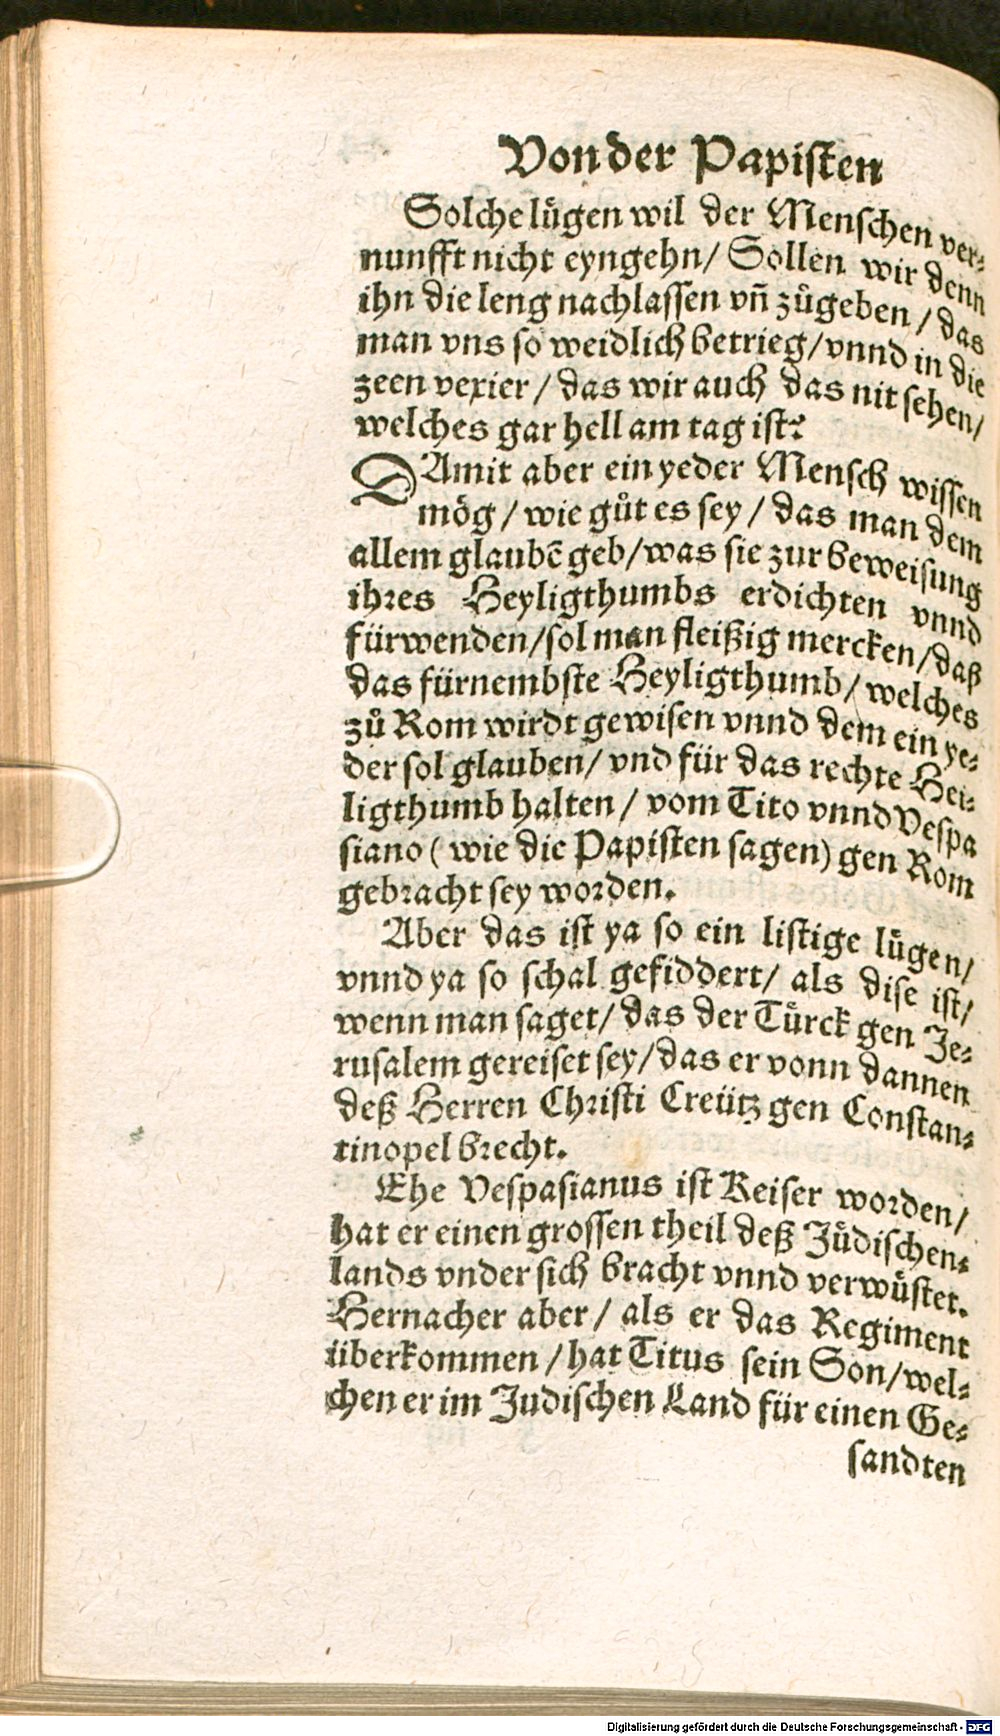 Von der Papisten
Solche lůgen wil der Menschen ver⸗
nunfft nicht eyngehn/ Sollen wir denn
ihn die leng nachlassen vn̄ zůgeben / das
man vns so weidlich betrieg/vnnd in die
zeen vexier / das wir auch das nit sehen/
welches gar hell am tag ist?
DAmit aber ein yeder Mensch wissen
mög / wie gůt es sey / das man dem
allem glaubē geb/was sie zur beweisung
ihres Heyligthumbs erdichten vnnd
fürwenden/sol man fleißig mercken/daß
das fürnembste Heyligthumb/ welches
zů Rom wirdt gewisen vnnd dem ein ye⸗
der sol glauben/ vnd für das rechte Hei⸗
ligthumb halten / vom Tito vnnd Vespa
siano ( wie die Papisten sagen) gen Rom
gebracht sey worden.
Aber das ist ya so ein listige lůgen/
vnnd ya so schal gefiddert/ als dise ist/
wenn man saget/ das der Tůrck gen Je⸗
rusalem gereiset sey/das er vonn dannen
deß Herren Christi Creütz gen Constan⸗
tinopel brecht.
Ehe Vespasianus ist Keiser worden/
hat er einen grossen theil deß Jůdischen⸗
lands vnder sich bracht vnnd verwůstet.
Hernacher aber/ als er das Regiment
überkommen / hat Titus sein Son/wel⸗
chen er im Judischen Land für einen Ge⸗
sandten
Digitalisierung gefördert durch die Deutsche Forschungsgemeinschaft - DFG